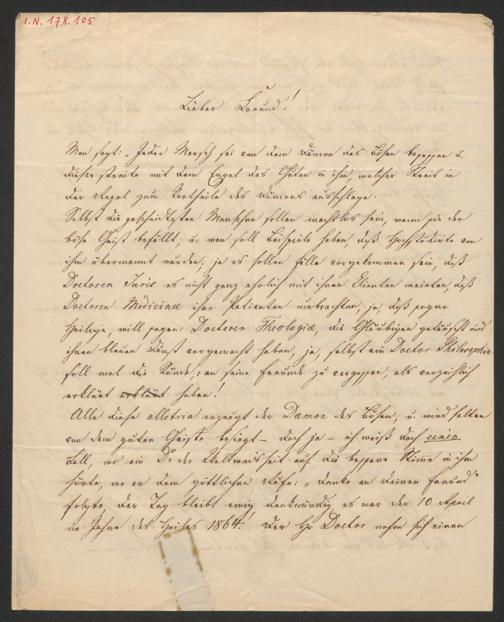 I.N. 178.105
Lieber Freund!
Man sagt: Jeder Mensch sei von dem Dämon des Bösen besessen u.
dieser streite mit dem Engel des Guten in ihm, welcher Streit in
der Regel zum Vortheile des Dämons ausschlage.
Selbst die gescheidtesten Menschen sollen machtlos sein, wenn sie der
böse Geist befällt, u. man soll Beispiele haben daß Hochstudirte von
ihm übermannt wurden, ja es sollen Fälle vorgekommen sein, daß
Doctoren Juris es nicht ganz ehrlich mit ihren Clienten meinten, daß
Doctoren Medicinæ ihre Patienten umbrachten, ja, daß sogar
Heilige, will sagen Doctoren Theologiæ, die Gläubigen getäuscht und
ihnen blauen Dunst vorgemacht haben, ja, selbst ein Doctor Philosophiæ
soll mal die Sünde, an seine Freunde zu vergessen, als verzeihlich
erklärt erklärt haben!
Alle diese allotria erzeugt der Dæmon des Bösen, u. wird selten
von dem guten Geiste besiegt – doch ja – ich weiß doch einen
Fall, wo ein Dr der Weltweisheit auf die bessere Stimme in ihm
hörte, wo er dem göttlichen Rufe: „denke an deinen Freund"
folgte, der Tag bleibt ewig denkwürdig es war der 10 April
im Jahre des Heiles 1864. Der Hr Doctor nahm sich einen